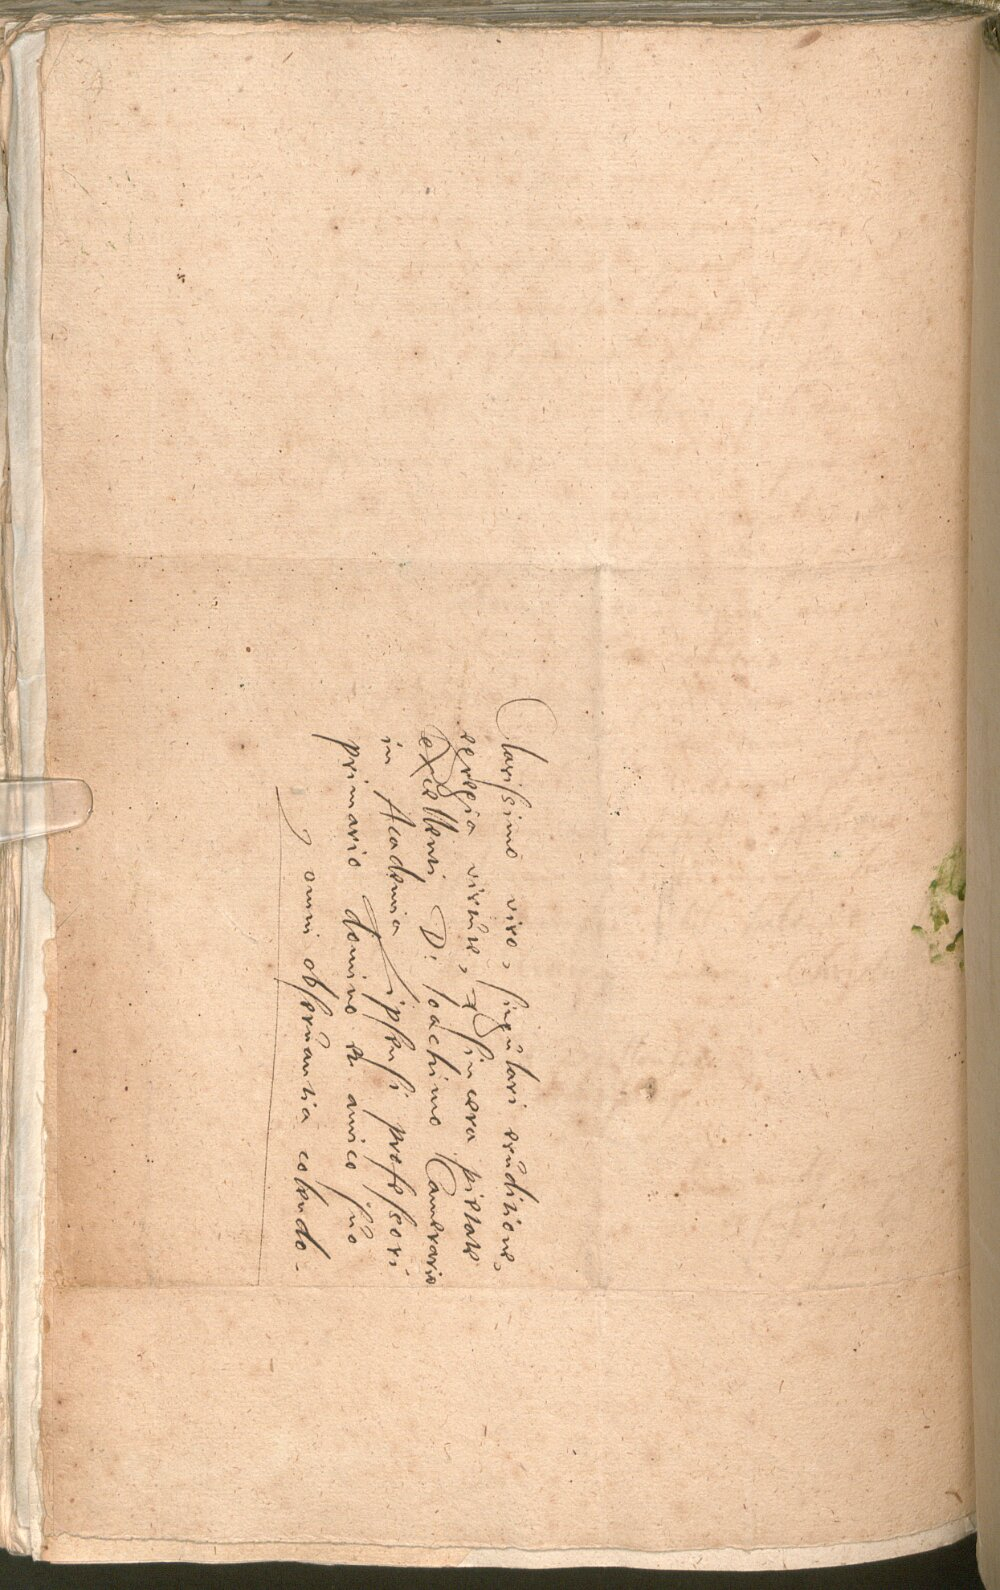 Clarissimo viro, singulari eruditione,
egregia virtute, et sincera pietate
excellenti D: Ioachimo Camerario
in Academia Lipsensi professori
primario domino et amico suo
omni obseruantia colendo.